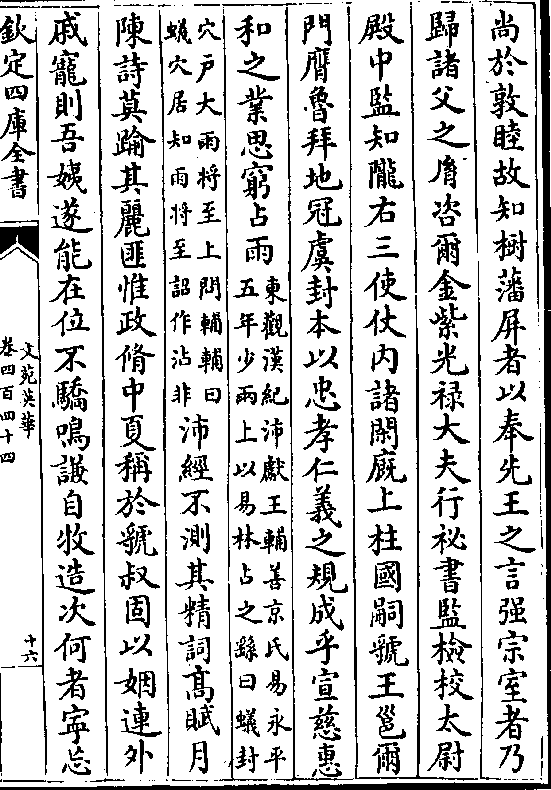 尚於敦睦故知樹藩屏者以奉先王之言强宗室者乃
歸諸父之胤咨爾金紫光禄大夫行祕書監檢校太尉
殿中監知隴右三使仗内諸閑廐上柱國嗣虢王邕爾
門膺魯拜地冠虞封本以忠孝仁義之規成乎宣慈惠
和之業思窮占雨東觀漢紀沛獻王輔善京氏易永平
五年少雨上以易林占之繇曰蟻封
穴戸大雨將至上問輔輔曰
蟻穴居知雨將至詔作沾非沛經不測其精詞髙賦月
陳詩莫踰其麗匪惟政脩中夏稱於虢叔固以姻連外
戚寵則吾姨遂能在位不驕鳴謙自牧造次何者寜忘
欽定四庫全書
文苑英華
卷四百四十四
十六